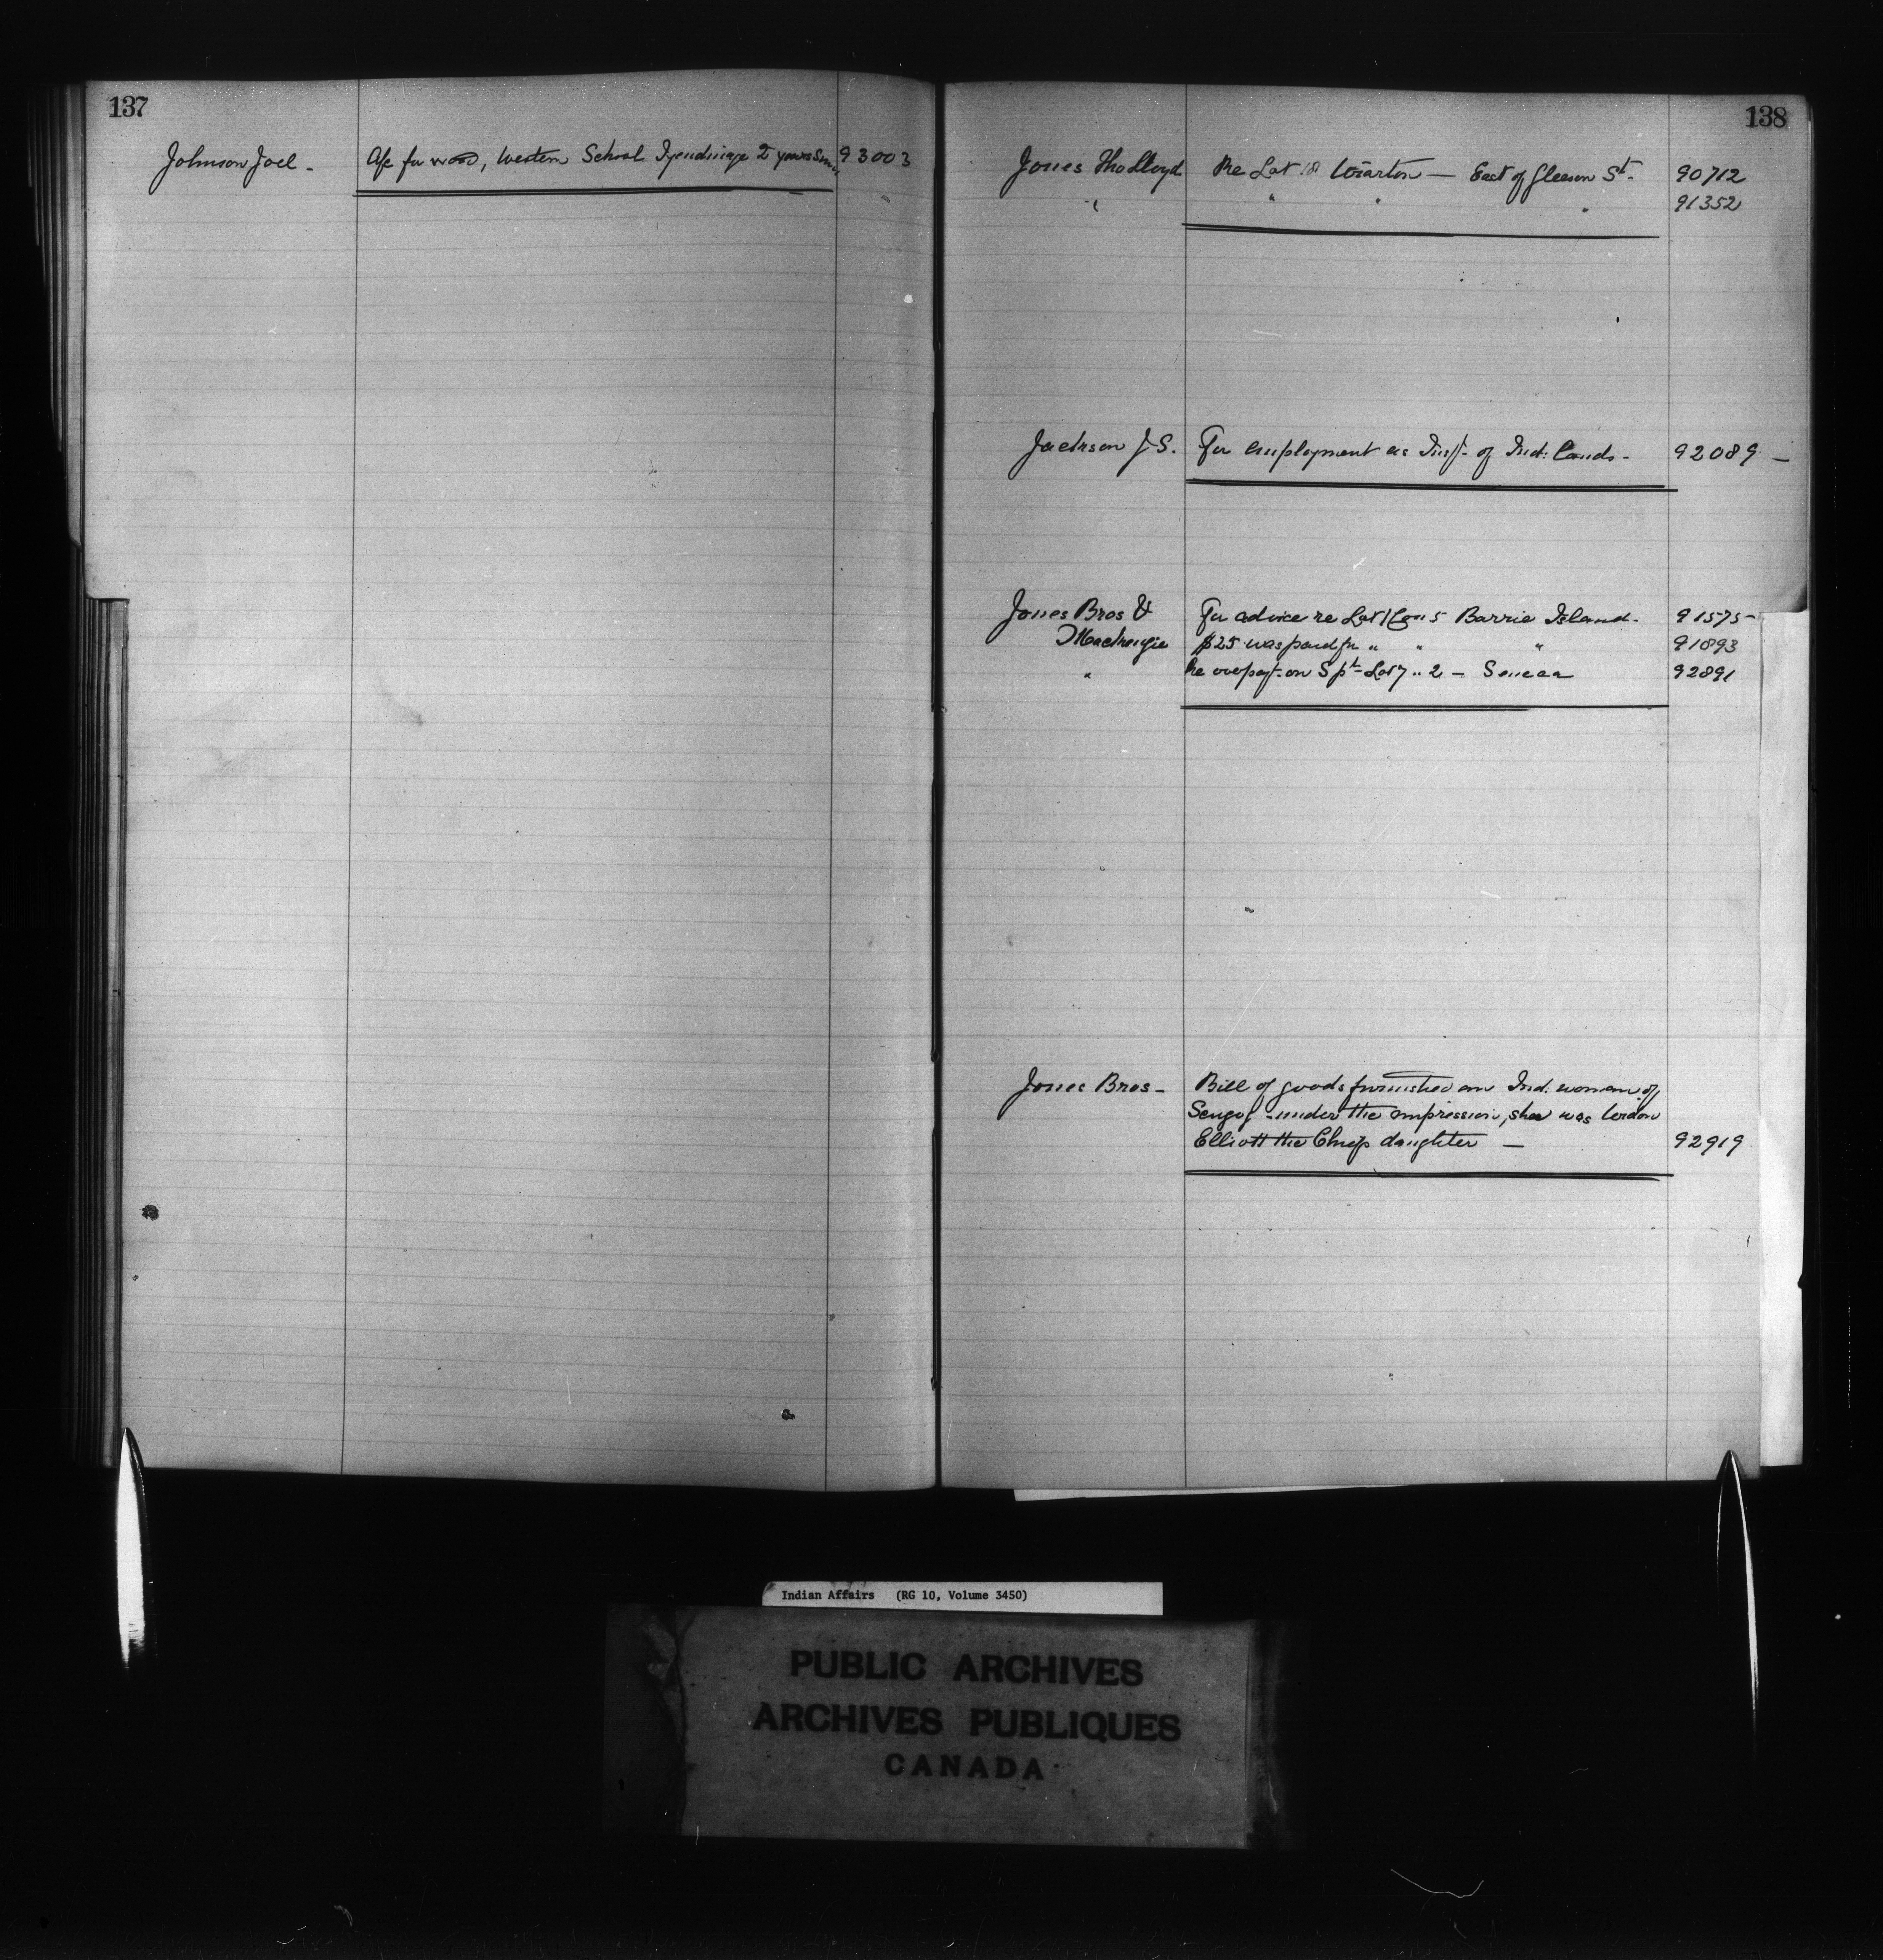 137
Johnson Joel - A/c for wood, Western School Tyendinaga 2 years 93003
138
Jones Tho Lloyd Re Lot 18 Wiarton — East of Gleason St. 90712
" " " " 91352
Jackson J. S. For employment as Insp. of Ind: Lands - 92089 -
Jones Bros & For advice re Lot 1 Con 5 Barrie Island - 91575 -
Mackenzie $25 was paid for " " " 91893
" Re overpayt. on S pt Lot 7 .. 2 - Seneca 92891
Jones Bros - Bill of goods furnished an Ind. woman of
Scugog - under the impression, she was
Elliott the Chiefs daughter — 92919
Indian Affairs (RG 10, Volume 3450)
PUBLIC ARCHIVES
ARCHIVES PUBLIQUES
CANADA